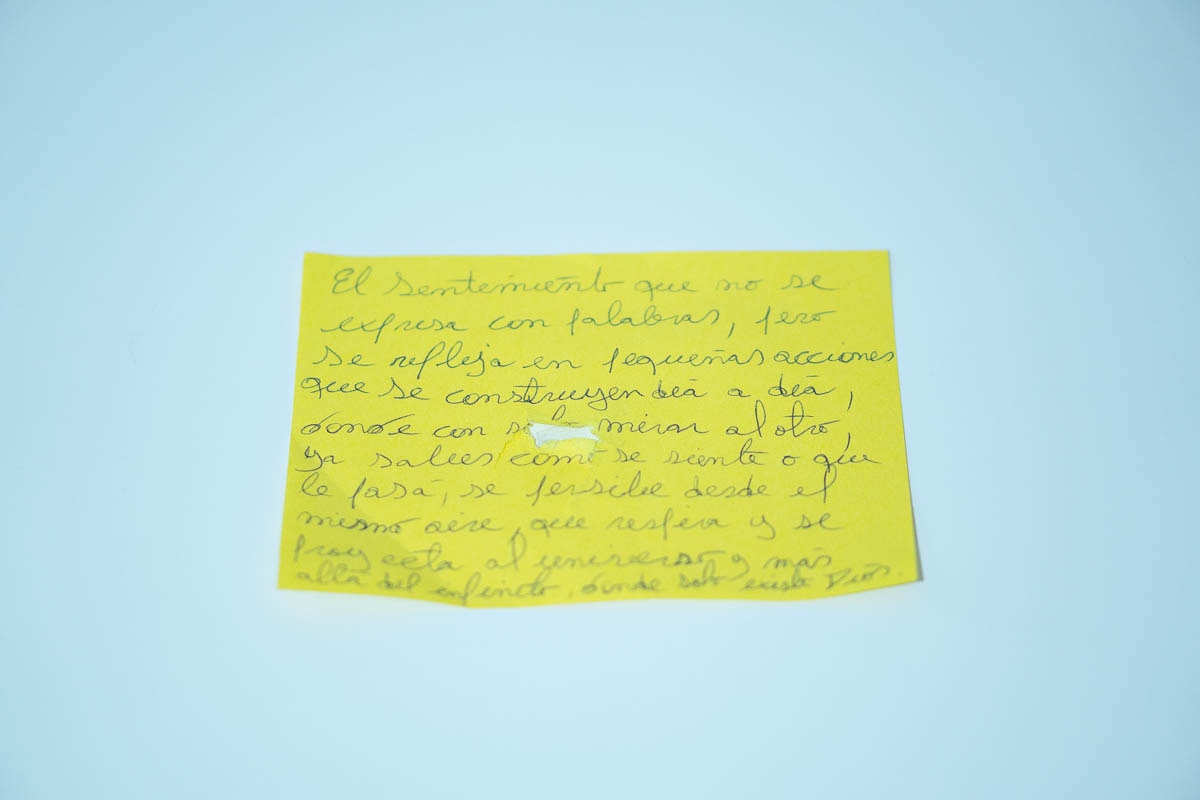 El sentimiento que no se
expresa con palabras, pero
se refleja en pequeñas acciones
que se construyen dia a dia,
donde con mirar al otro,
ya sabes como se siente o que
le pasa, se persibe desde el
mismo aire, que respira y se
proyecta al universo y más
allá del infinito, donde solo existe Dios.